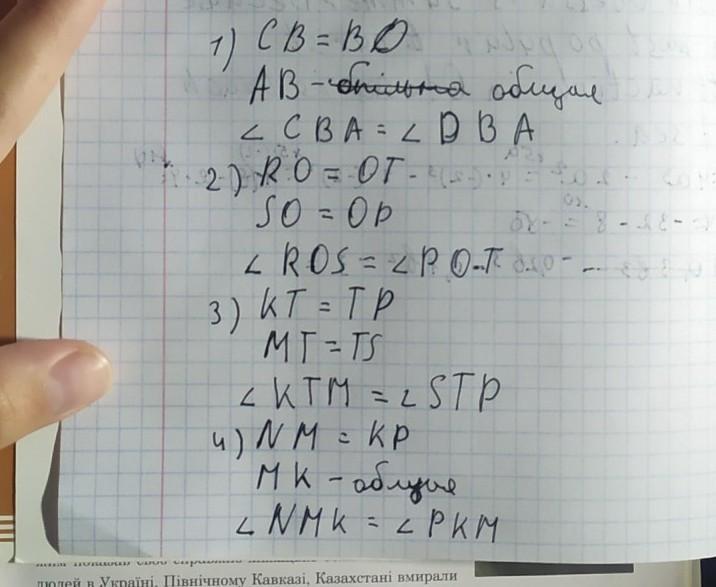 1) CB = BD
AB - спільна общая
∠ CBA = ∠ DBA
2) RO = OT
SO = OP
∠ ROS = ∠ POT
3) KT = TP
MT = TS
∠ KTM = ∠ STP
4) NM = KP
MK - общая
∠ NMK = ∠ PKM
людей в Україні, Північному Кавказі, Казахстані вмирали